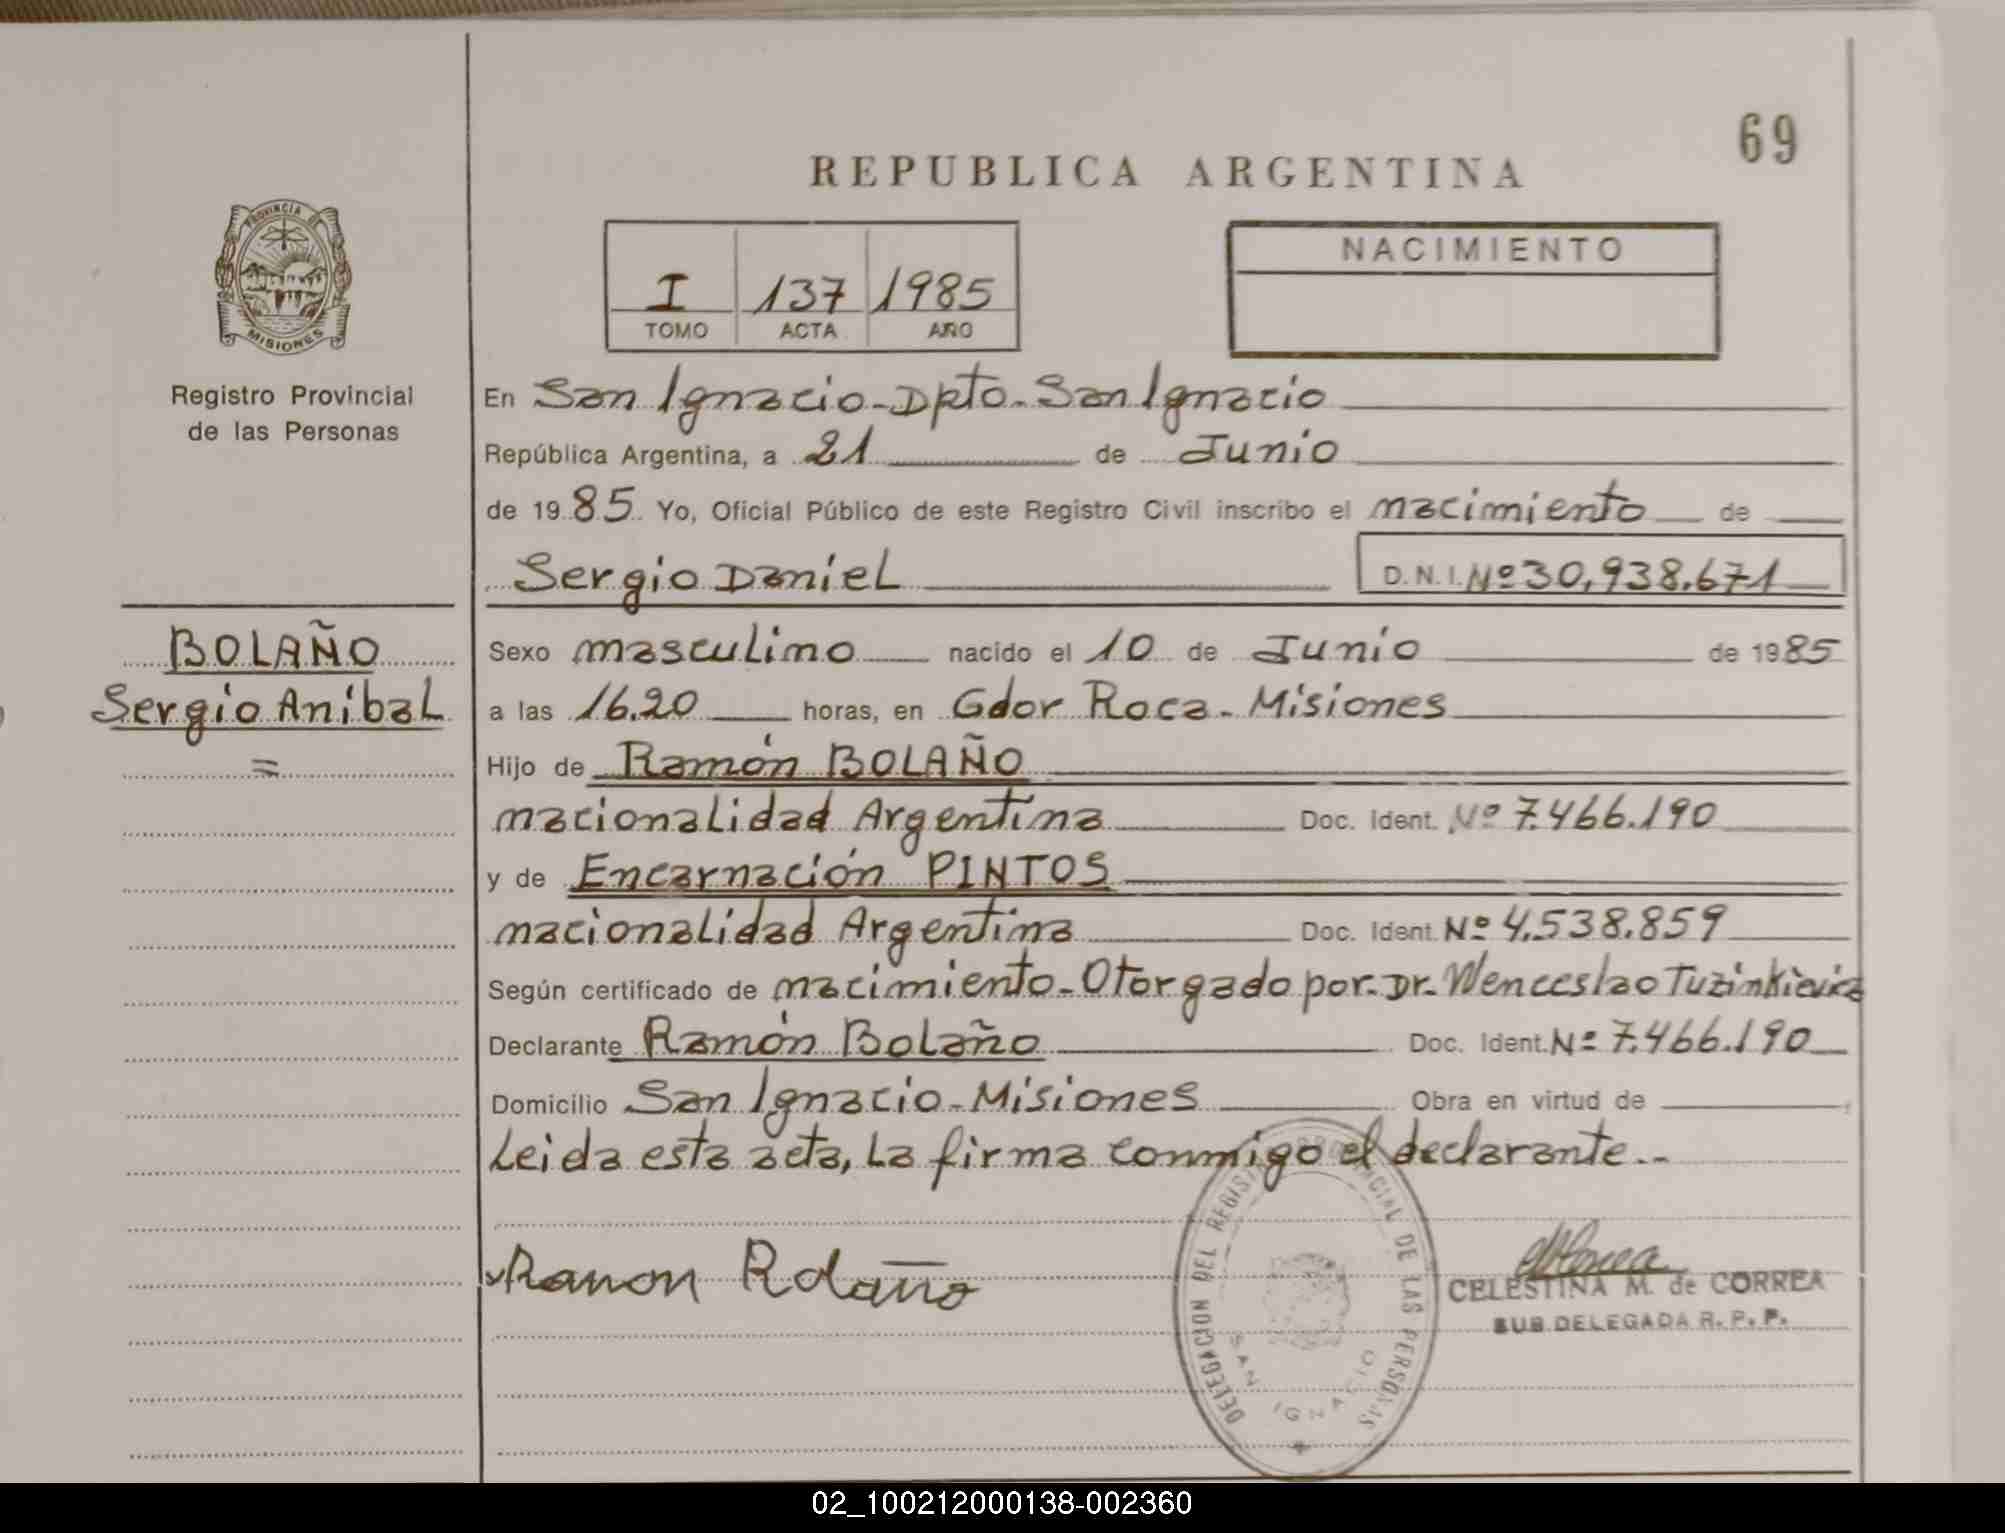 69
REPUBLICA ARGENTINA
PROVINCIA DE
MISIONES
I 137 1985
TOMO ACTA AÑO
NACIMIENTO
Registro Provincial
de las Personas
En San Ignacio - Dpto. San Ignacio
República Argentina, a 21 de Junio
de 1985. Yo, Oficial Público de este Registro Civil inscribo el nacimiento de
Sergio Daniel D.N.I. Nº 30,938.671
BOLAÑO
Sergio Anibal
=
Sexo masculino nacido el 10 de Junio de 1985
a las 16.20 horas, en Gdor Roca - Misiones
Hijo de Ramón BOLAÑO
nacionalidad Argentina Doc. Ident. Nº 7.466.190
y de Encarnación PINTOS
nacionalidad Argentina Doc. Ident. Nº 4.538.859
Según certificado de nacimiento - Otorgado por. Dr. Wenceslao Tuzinkievicz
Declarante Ramón Bolaño Doc. Ident. Nº 7.466.190
Domicilio San Ignacio - Misiones Obra en virtud de
Leida esta acta, La firma conmigo el declarante..
Ramon Bolaño
DELEGACION DEL REGISTRO PROVINCIAL DE LAS PERSONAS
SAN IGNACIO
CELESTINA M. de CORREA
SUB DELEGADA R. P. P.
02_100212000138-002360